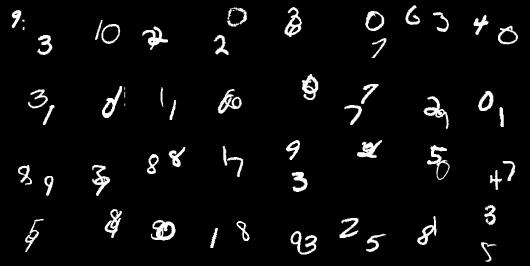 9 3 1 0 0 2 0 7 6 3 4 0
3 1 0 1 1 6 0 7 7 2 9 0 1
8 9 8 8 1 7 9 3 5 0 4 7
5 9 0 1 8 9 3 2 5 8 1 3 5